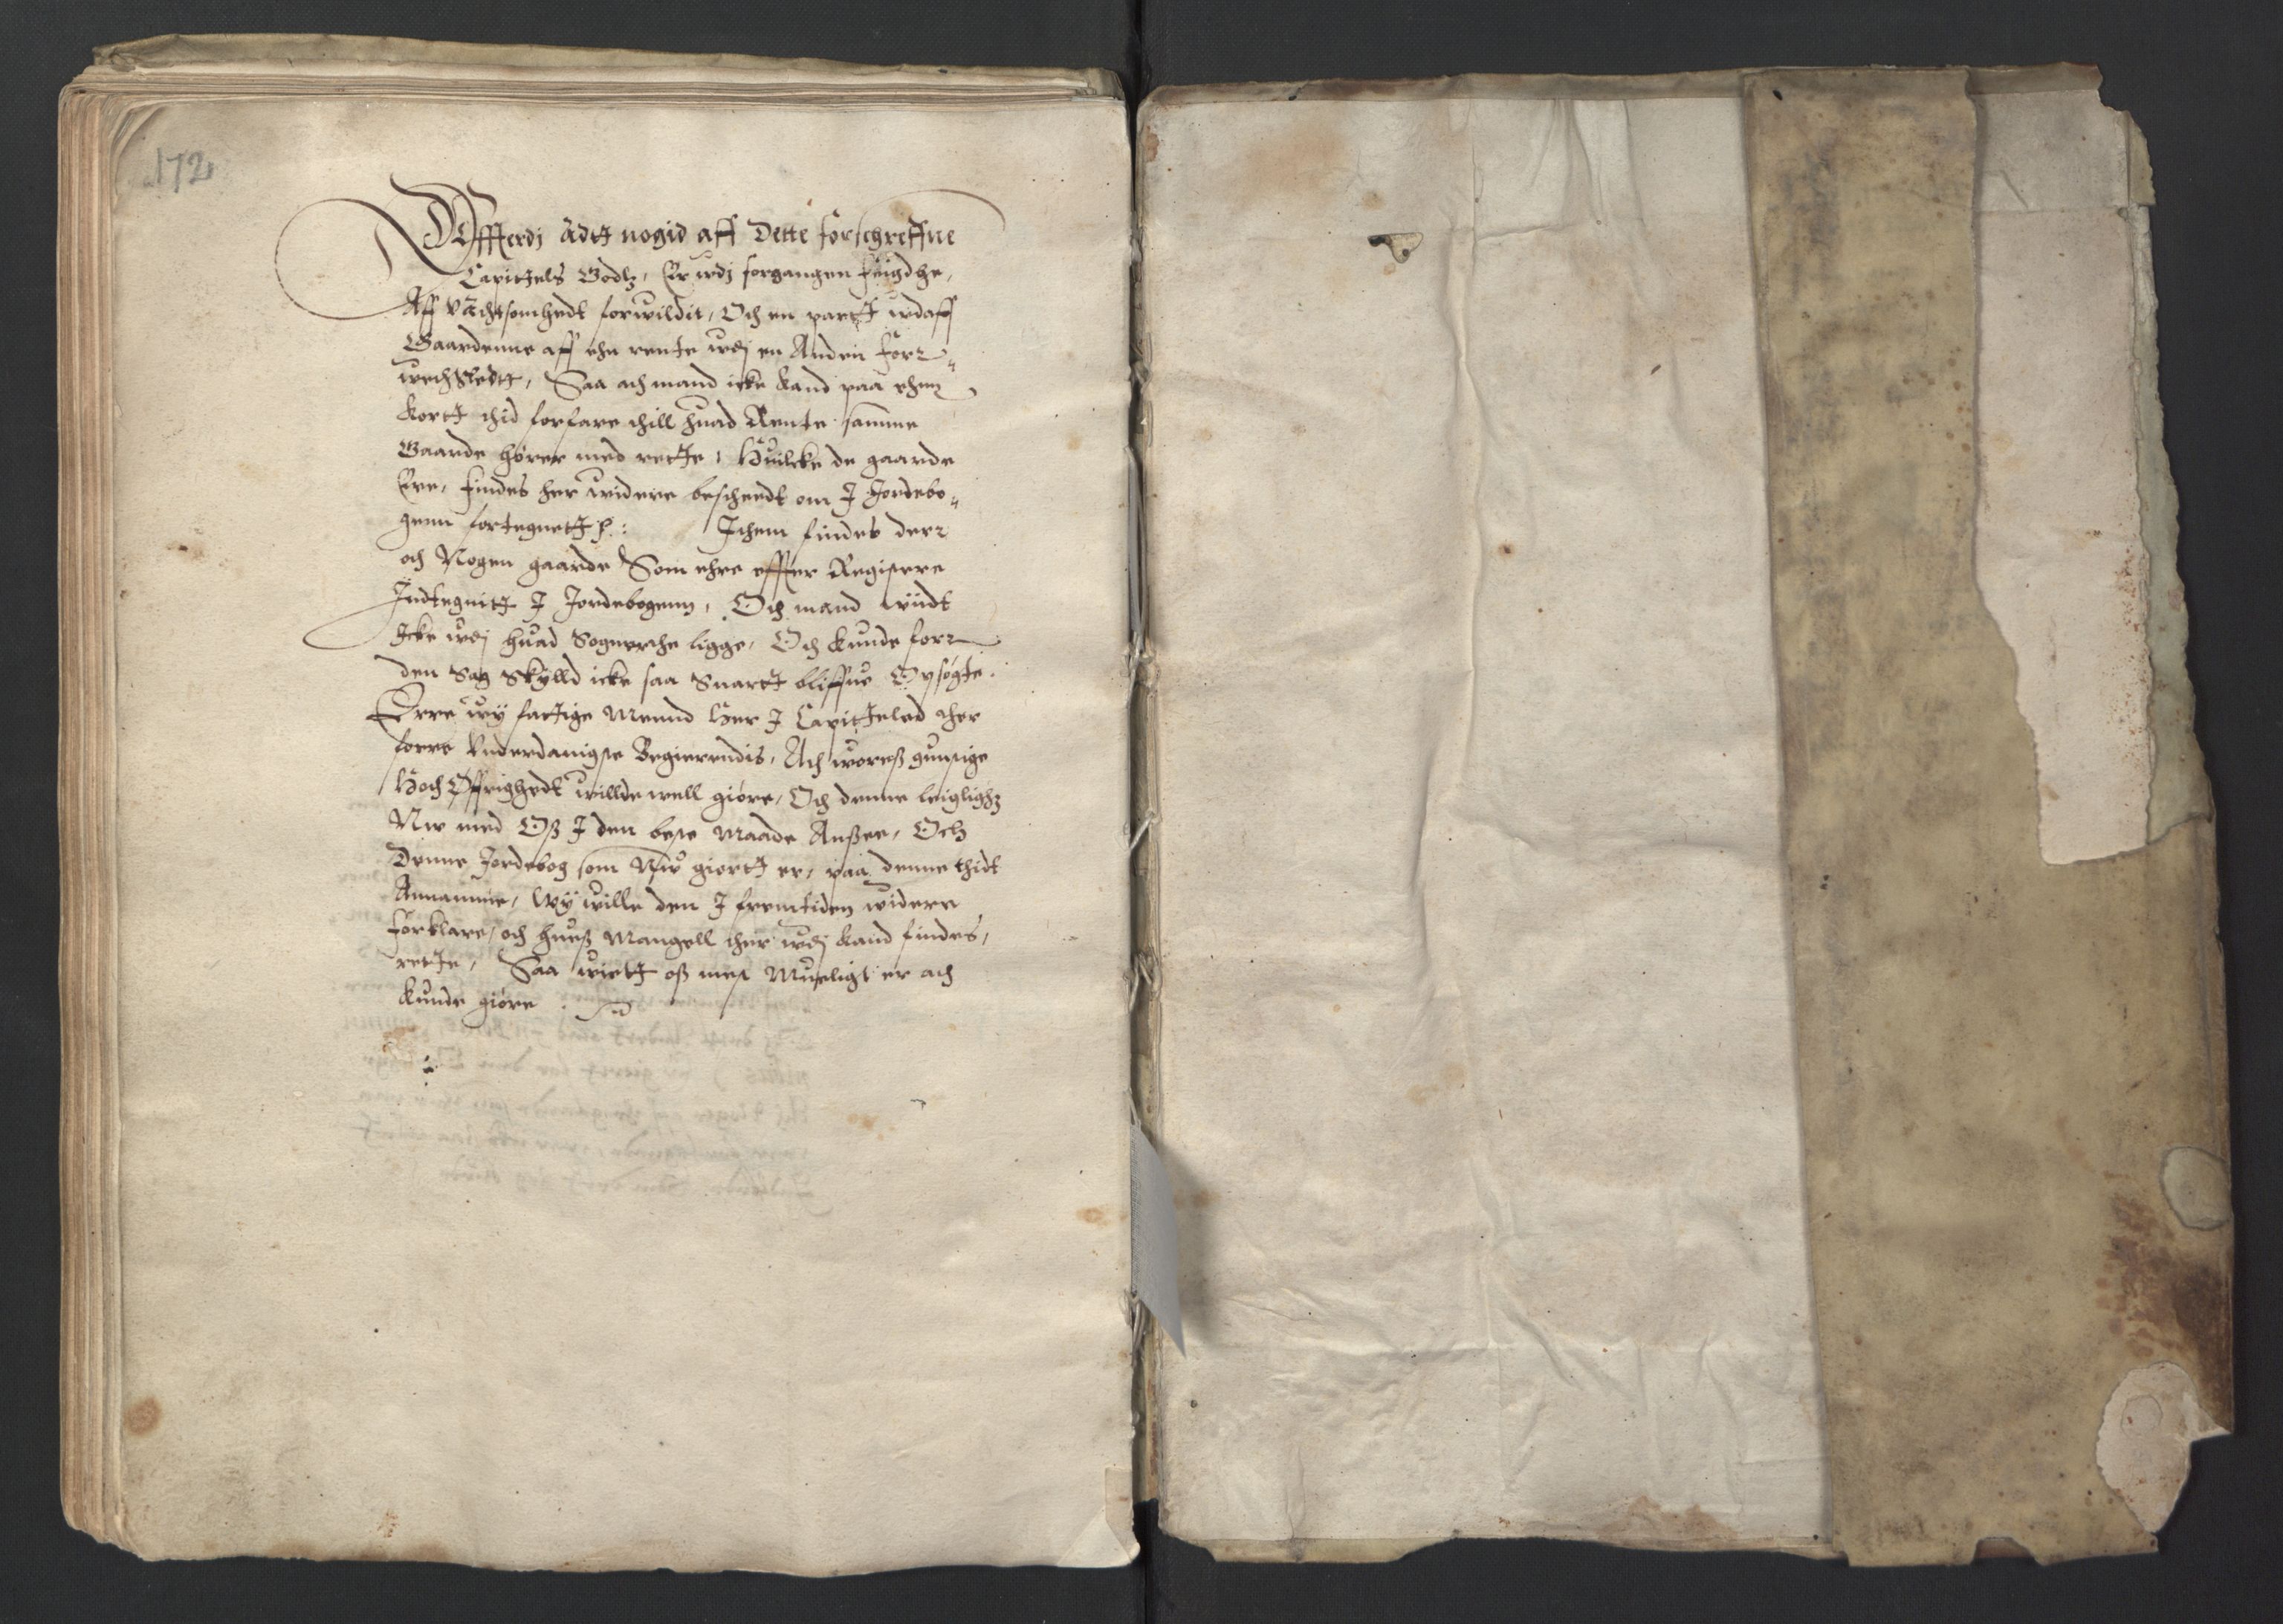 172
Offterdj ådtt nogid aff Dette forschreffne
Capittels Godtz, Er wdj forgangen feigdhe,
Aff Vachtsomhedt forwildit, Och en partt wdaff
Gaardenne aff ehn rente wdj en Anden forr„
wechsledtt, Saa ath mand icke kand paa ehen
kortt thid forfare thill huad Rente samme
Gaarde hører med rette, Huilcke de gaarde
Ere, findes her widere bescheedt om I Jordebo„
genn fortegnett p: Ithem findes derr
och Nogen gaarde Som ehre effter Registere
Indtegnitt I Jordebogenn, Och mand wiidt
Icke wdj huad Sognn the ligge, Och kunde forr
den Sag Skylld icke saa Snartt bliffue Opsøgte.
Erre wy fattige Mennd her I Capitteled ther
forre Vnderdanigste Begierendis, Ath woress gunstige
Høch Øffrighedt willde well giøre, Och denne leiglighz
Nw med Oss I den beste Maade Ansee, Och
Denne Jordebog som Nw giortt er, paa denne thidt
Annamme, Wy wille den I fremtiden widere
forklare, och huess Mangell ther wdj kand findes,
rette, Saa wiett oss mest Mueligt er ath
kunde giøre.